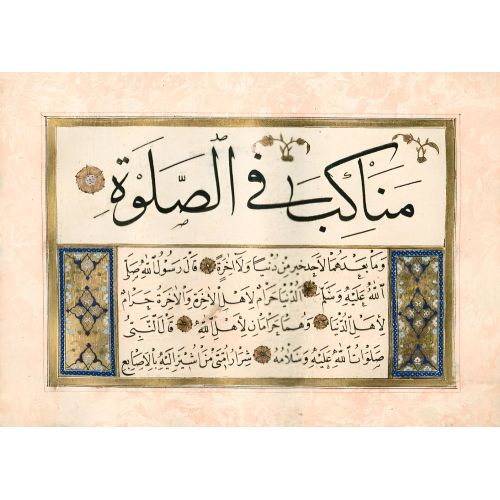 مَنَاكِبَ فِي الصَّلٰوةِ
وَمَا بَعْدَهُمَا لِأَحَدٍ خَيْرٌ مِنْ دُنْيَا وَلَا اٰخِرَةٍ قَالَ رَسُولُ اللّٰهِ صَلَّى
اللّٰهُ عَلَيْهِ وَسَلَّمَ الدُّنْيَا حَرَامٌ لِأَهْلِ الْاٰخِرَةِ وَالْاٰخِرَةُ حَرَامٌ
لِأَهْلِ الدُّنْيَا وَهُمَا حَرَامَانِ لِأَهْلِ اللّٰهِ قَالَ النَّبِيُّ
صَلَوَاتُ اللّٰهِ عَلَيْهِ وَسَلَامُهُ شِرَارُ أُمَّتِي مَنْ أُشِيرَ إِلَيْهِ بِالْأَصَابِعِ